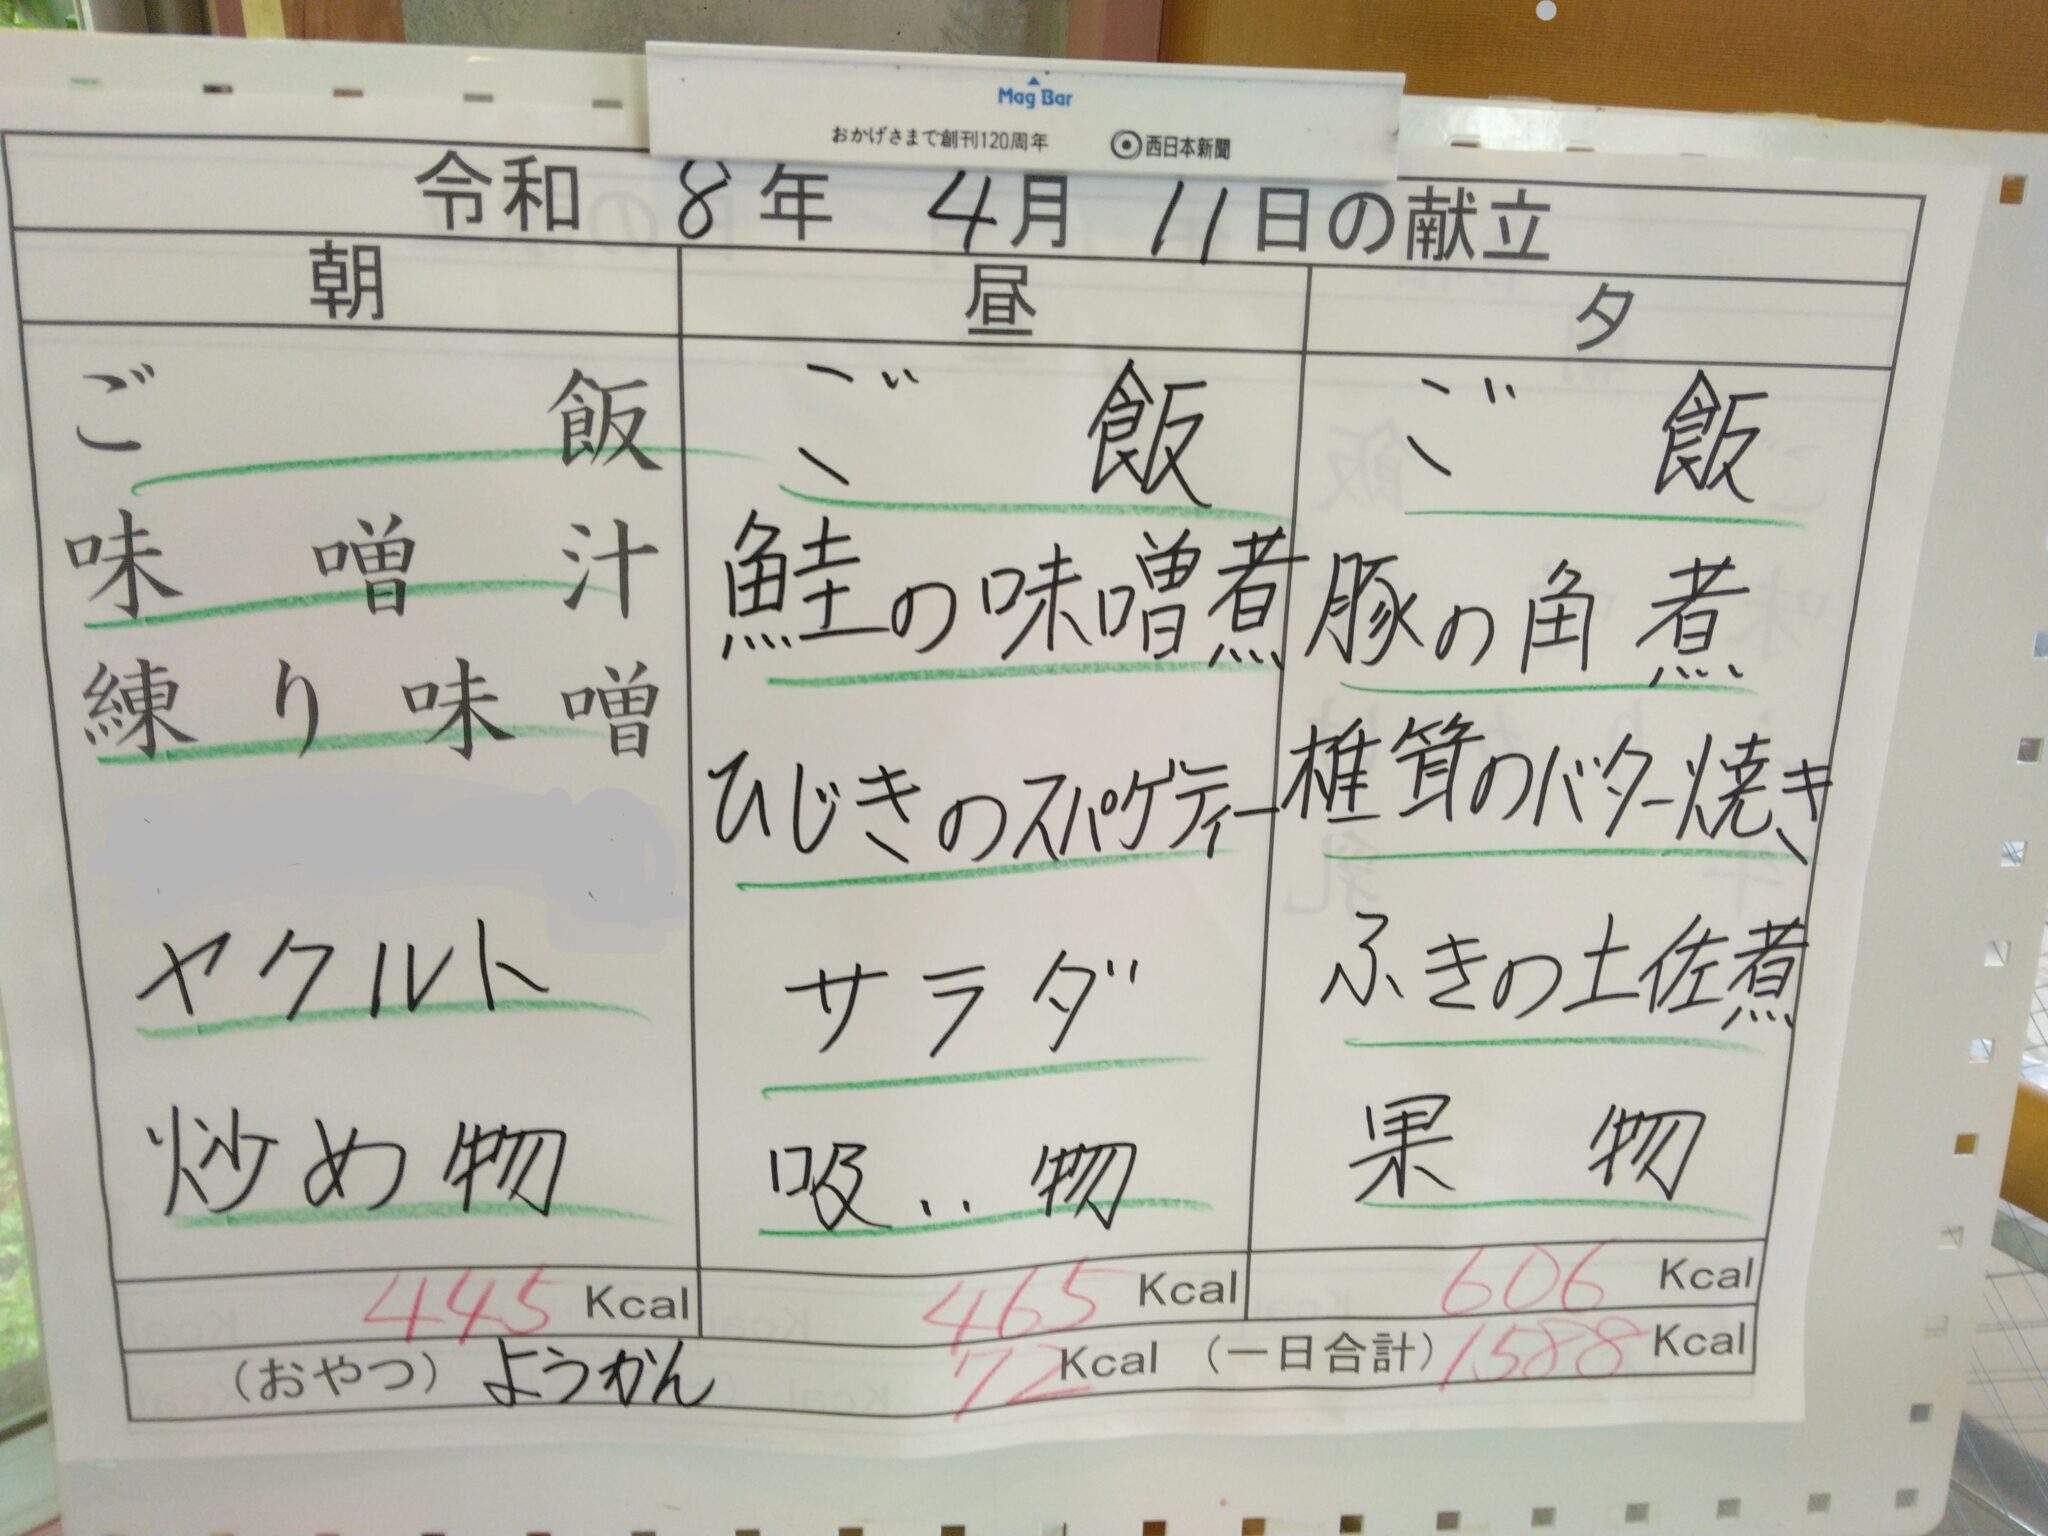 Mag Bar
おかげさまで創刊120周年 西日本新聞
令和 8 年 4月 11日の献立
朝 昼 夕
ご飯
味噌汁
練り味噌
ヤクルト
炒め物
445 Kcal
ご飯
鮭の味噌煮
ひじきのスパゲティー
サラダ
吸..物
465 Kcal
ご飯
豚の角煮
椎茸のバター焼き
ふきの土佐煮
果物
606 Kcal
(おやつ) ようかん 72 Kcal (一日合計) 1588 Kcal